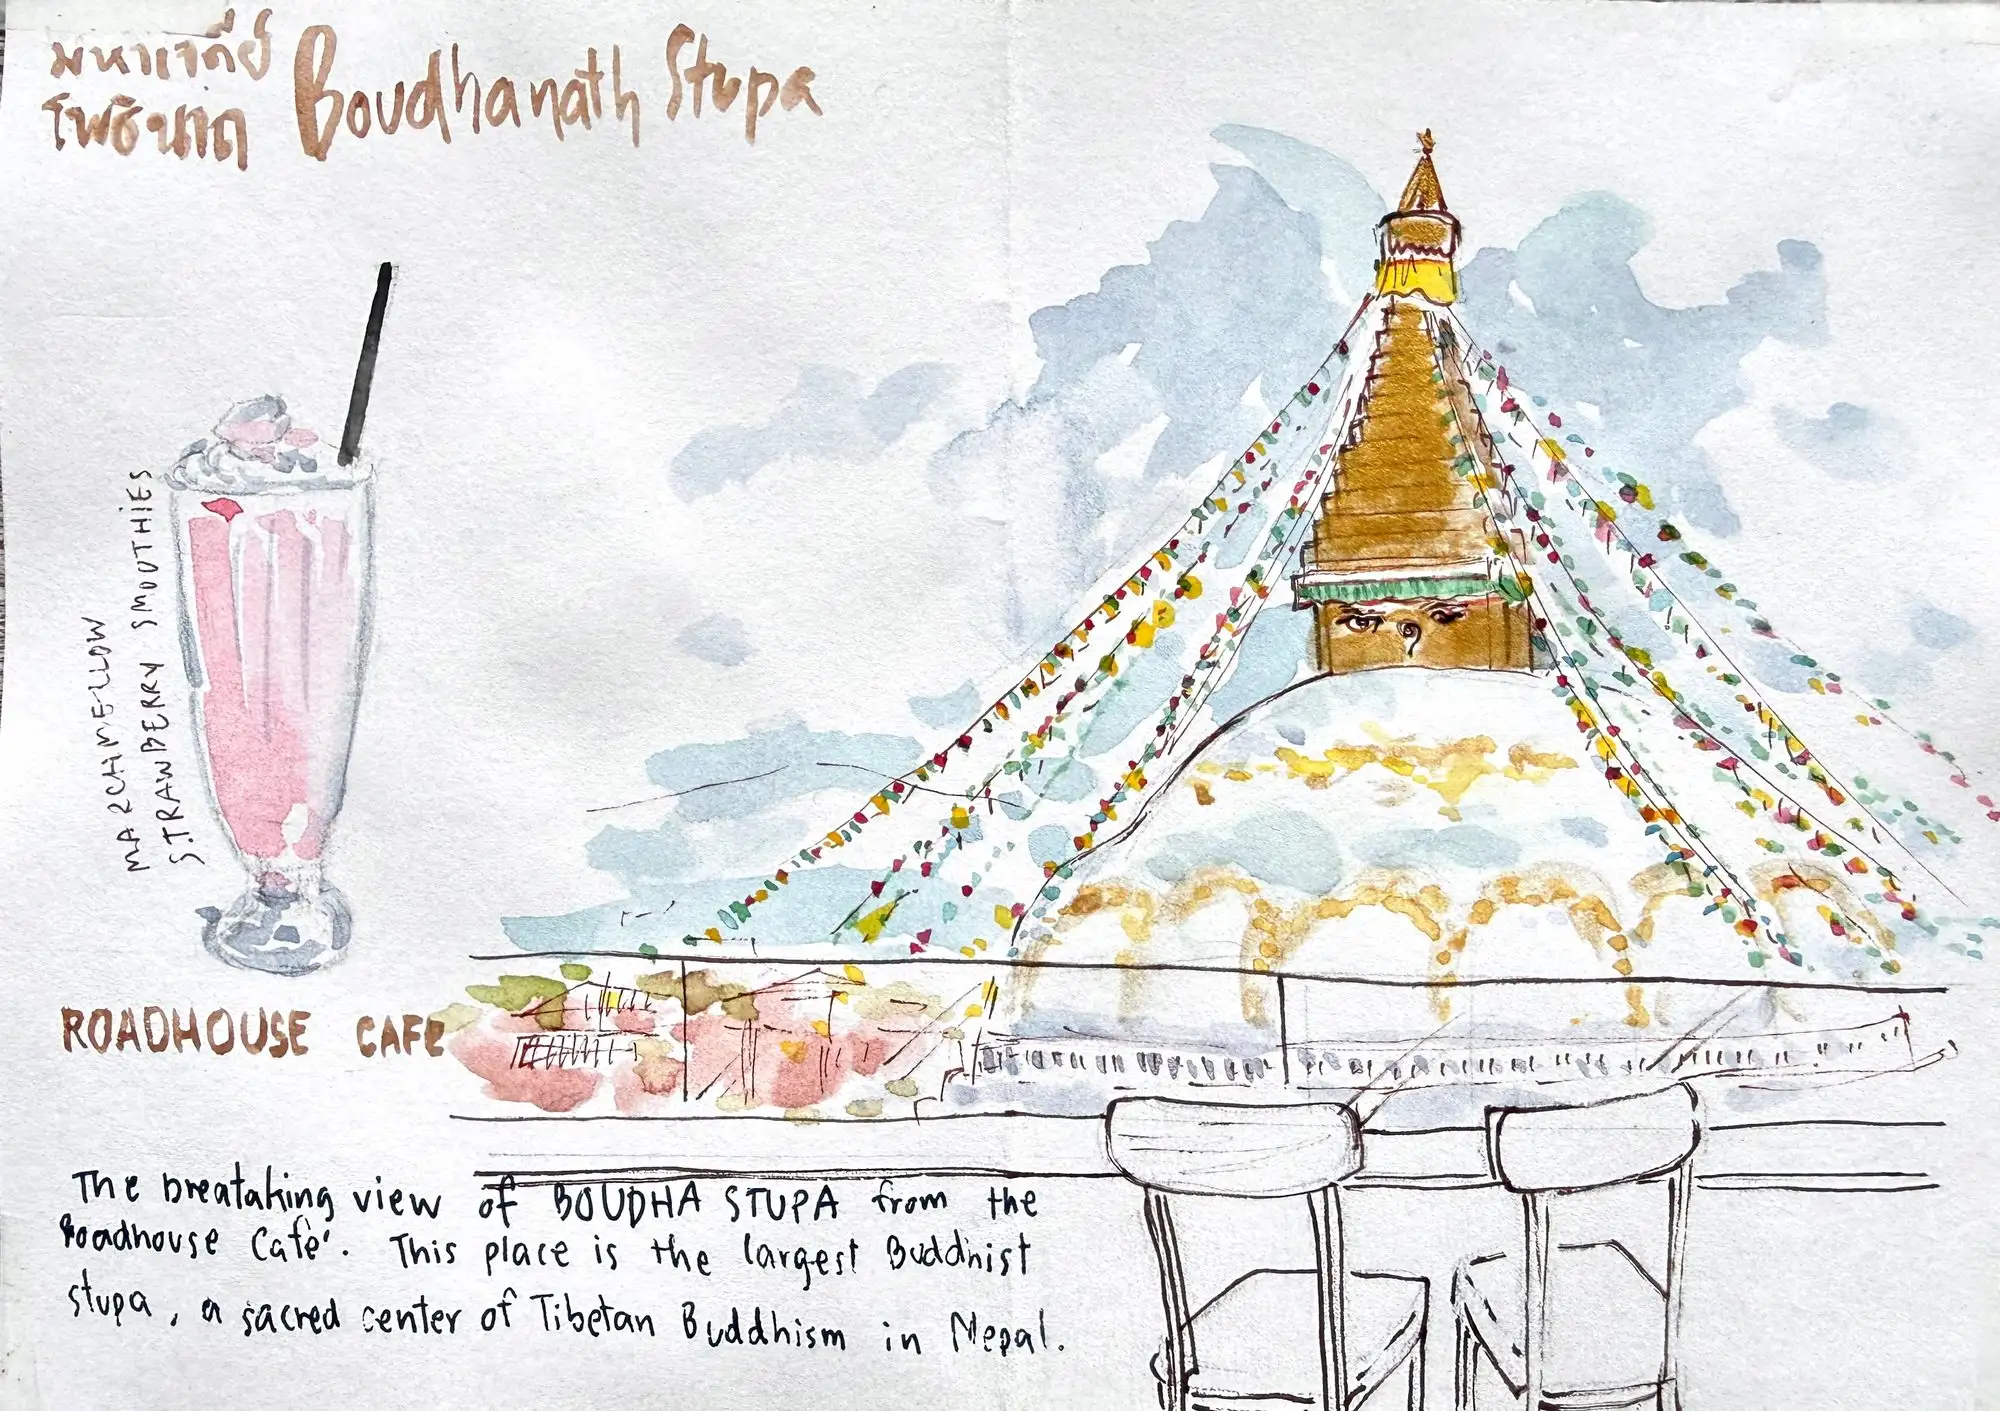 มหาเจดีย์
โพธินาถ
Boudhanath Stupa
MARCHMELLOW
STRAWBERRY SMOUTHIES
ROADHOUSE CAFE
The breataking view of BOUDHA STUPA from the
Roadhouse Cafe'. This place is the largest Buddhist
stupa, a sacred center of Tibetan Buddhism in Nepal.